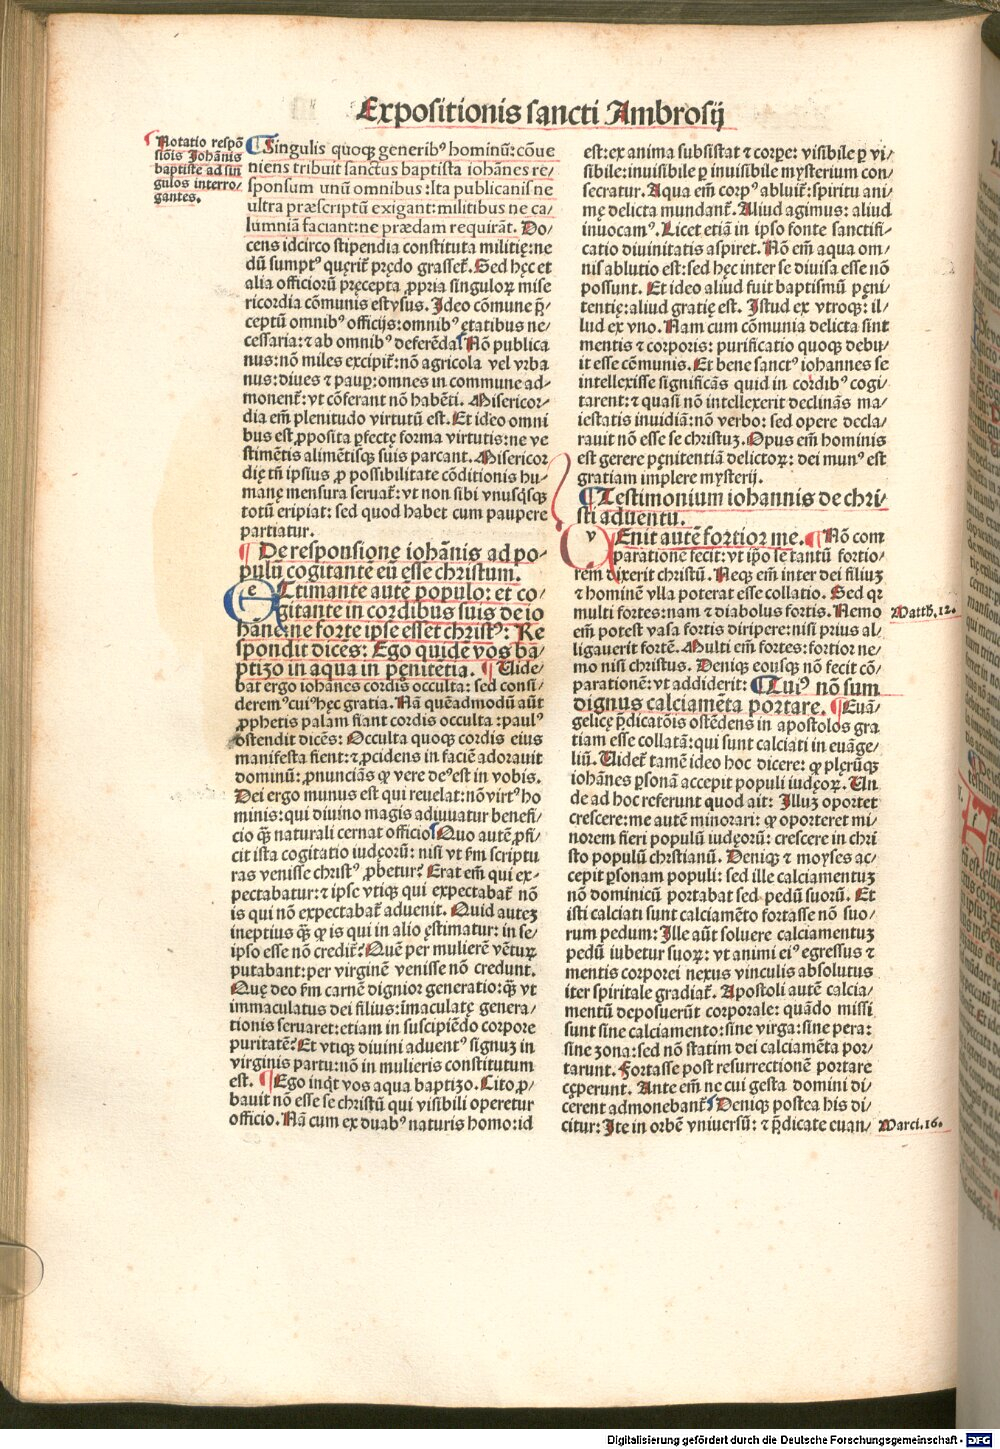 Expositionis sancti Ambrosij
Notatio respõ
siõis Johãnis
baptiste ad sin
gulos interro⸗
gantes.
Singulis quoqꝫ generibꝰ hominũ: cõue
niens tribuit sanctus baptista iohãnes re⸗
sponsum unũ omnibus: Ista publicanis ne
ultra præscriptũ exigant: militibus ne ca⸗
lumniã faciant: ne prædam requirãt. Do⸗
cens idcirco stipendia constituta militię: ne
dũ sumptꝰ quęrit̃ prędo grasset̃. Sed hęc et
alia officiorũ pręcepta ꝓpria singuloꝝ mise
ricordia cõmunis est vsus. Ideo cõmune p̃⸗
ceptũ omnibꝰ officijs: omnibꝰ ętatibus ne⸗
cessaria: ⁊ ab omnibꝰ deferẽda. Nõ publica
nus: nõ miles excipit̃: nõ agricola vel vrba
nus: diues ⁊ pauꝑ: omnes in commune ad⸗
monent̃: vt cõferant nõ habẽti. Misericor⸗
dia em̃ plenitudo virtutũ est. Et ideo omni
bus est ꝓposita ꝑfectę forma virtutis: ne ve
stimẽtis alimẽtisqꝫ suis parcant. Misericor
dię tñ ipsius ꝓ possibilitate cõditionis hu⸗
manę mensura seruat̃: vt non sibi vnusq̃sqꝫ
totũ eripiat: sed quod habet cum paupere
partiatur.
¶ De responsione iohãnis ad po⸗
pulũ cogitantẽ eũ esse christum.
e Extimante autẽ populo: et co⸗
gitante in cordibus suis de io
hãne: ne forte ipse esset christꝰ: Re
spondit dicẽs: Ego quidẽ vos ba⸗
ptizo in aqua in pęnitẽtia. ¶ Uide⸗
bat ergo iohãnes cordis occulta: sed consi⸗
deremꝰ cuiꝰ hęc gratia. Nã quẽadmodũ aũt
ꝓphetis palam fiant cordis occulta: paulꝰ
ostendit dicẽs: Occulta quoqꝫ cordis eius
manifesta fient: ⁊ ꝓcidens in faciẽ adorauit
dominũ: ꝓnuncians ꝙ vere deꝰ est in vobis.
Dei ergo munus est qui reuelat: nõ virtꝰ ho
minis: qui diuino magis adiuuatur benefi⸗
cio q̃ꝫ naturali cernat officio. Quo autẽ ꝓfi⸗
cit ista cogitatio iudęorũ: nisi vt ẜm scriptu
ras venisse christꝰ ꝓbetur? Erat em̃ qui ex⸗
pectabatur: ⁊ ipse vtiqꝫ qui expectabat̃ nõ
is qui nõ expectabat̃ aduenit. Quid autez
ineptius q̃ꝫ ꝙ is qui in alio ęstimatur: in se⸗
ipso esse nõ credit̃? Quẽ per mulierẽ vẽtuꝝ
putabant: per virginẽ venisse nõ credunt.
Quę deo ẜm carnẽ dignior generatio: q̃ꝫ vt
immaculatus dei filius: imaculatę genera⸗
tionis seruaret: etiam in suscipiẽdo corpore
puritatẽ? Et vtiqꝫ diuini aduentꝰ signuz in
virginis partu: nõ in mulieris constitutum
est. ¶ Ego inqt vos aqua baptizo. Cito ꝓ⸗
bauit nõ esse se christũ qui visibili operetur
officio. Nã cum ex duabꝰ naturis homo: id
est: ex anima subsistat ⁊ corꝑe: visibile ꝑ vi⸗
sibile: inuisibile ꝑ inuisibile mysterium con⸗
secratur. Aqua em̃ corpꝰ abluit̃: spiritu ani⸗
mę delicta mundant̃. Aliud agimus: aliud
inuocamꝰ. Licet etiã in ipso fonte sanctifi⸗
catio diuinitatis aspiret. Nõ em̃ aqua om⸗
nis ablutio est: sed hęc inter se diuisa esse nõ
possunt. Et ideo aliud fuit baptismũ pęni⸗
tentię: aliud gratię est. Istud ex vtroqꝫ: il⸗
lud ex vno. Nam cum cõmunia delicta sint
mentis ⁊ corporis: purificatio quoqꝫ debu⸗
it esse cõmunis. Et bene sanctꝰ iohannes se
intellexisse significãs quid in cordibꝰ cogi⸗
tarent: ⁊ quasi nõ intellexerit declinãs ma⸗
iestatis inuidiã: nõ verbo: sed opere decla⸗
rauit nõ esse se christuz. Opus em̃ hominis
est gerere pęnitentiã delictoꝝ: dei munꝰ est
gratiam implere mysterij.
¶ Testimonium iohannis de chri⸗
sti aduentu.
v Enit autẽ fortior me. ¶ Nõ com
paratione fecit: vt ip̃o se tantũ fortio⸗
rem dixerit christũ. Neqꝫ em̃ inter dei filiuz
⁊ hominẽ vlla poterat esse collatio. Sed qꝛ
multi fortes: nam ⁊ diabolus fortis. Nemo
em̃ potest vasa fortis diripere: nisi prius al⸗
ligauerit fortẽ. Multi em̃ fortes: fortior ne⸗
mo nisi christus. Deniqꝫ eousqꝫ nõ fecit cõ⸗
parationẽ: vt addiderit: ¶ Cuiꝰ nõ sum
dignus calciamẽta portare. ¶ Euã⸗
gelicę p̃dicatõis ostẽdens in apostolos gra
tiam esse collatã: qui sunt calciati in euãge⸗
liũ. Uidet̃ tamẽ ideo hoc dicere: ꝙ plęrũqꝫ
iohãnes ꝑsonã accepit populi iudęoꝝ. Un
de ad hoc referunt quod ait: Illuz oportet
crescere: me autẽ minorari: ꝙ oporteret mi⸗
norem fieri populũ iudęorũ: crescere in chri
sto populũ chrstianũ. Deniqꝫ ⁊ moyses ac⸗
cepit ꝑsonam populi: sed ille calciamentuz
nõ dominicũ portabat sed pedũ suorũ. Et
isti calciati sunt calciamẽto fortasse nõ suo⸗
rum pedum: Ille aũt soluere calciamentuz
pedũ iubetur suoꝝ: vt animi eiꝰ egressus ⁊
mentis corporei nexus vinculis absolutus
iter spiritale gradiat̃. Apostoli autẽ calcia⸗
mentũ deposuerũt corporale: quãdo missi
sunt sine calciamento: sine virga: sine pera:
sine zona: sed nõ statim dei calciamẽta por⸗
tarunt. Fortasse post resurrectionẽ portare
cęperunt. Ante em̃ ne cui gesta domini di⸗
cerent admonebant̃. Deniqꝫ postea his di⸗
citur: Ite in orbẽ vniuersũ: ⁊ p̃dicate euan⸗
Matth. 12.
Marci. 16.
Digitalisierung gefördert durch die Deutsche Forschungsgemeinschaft - DFG